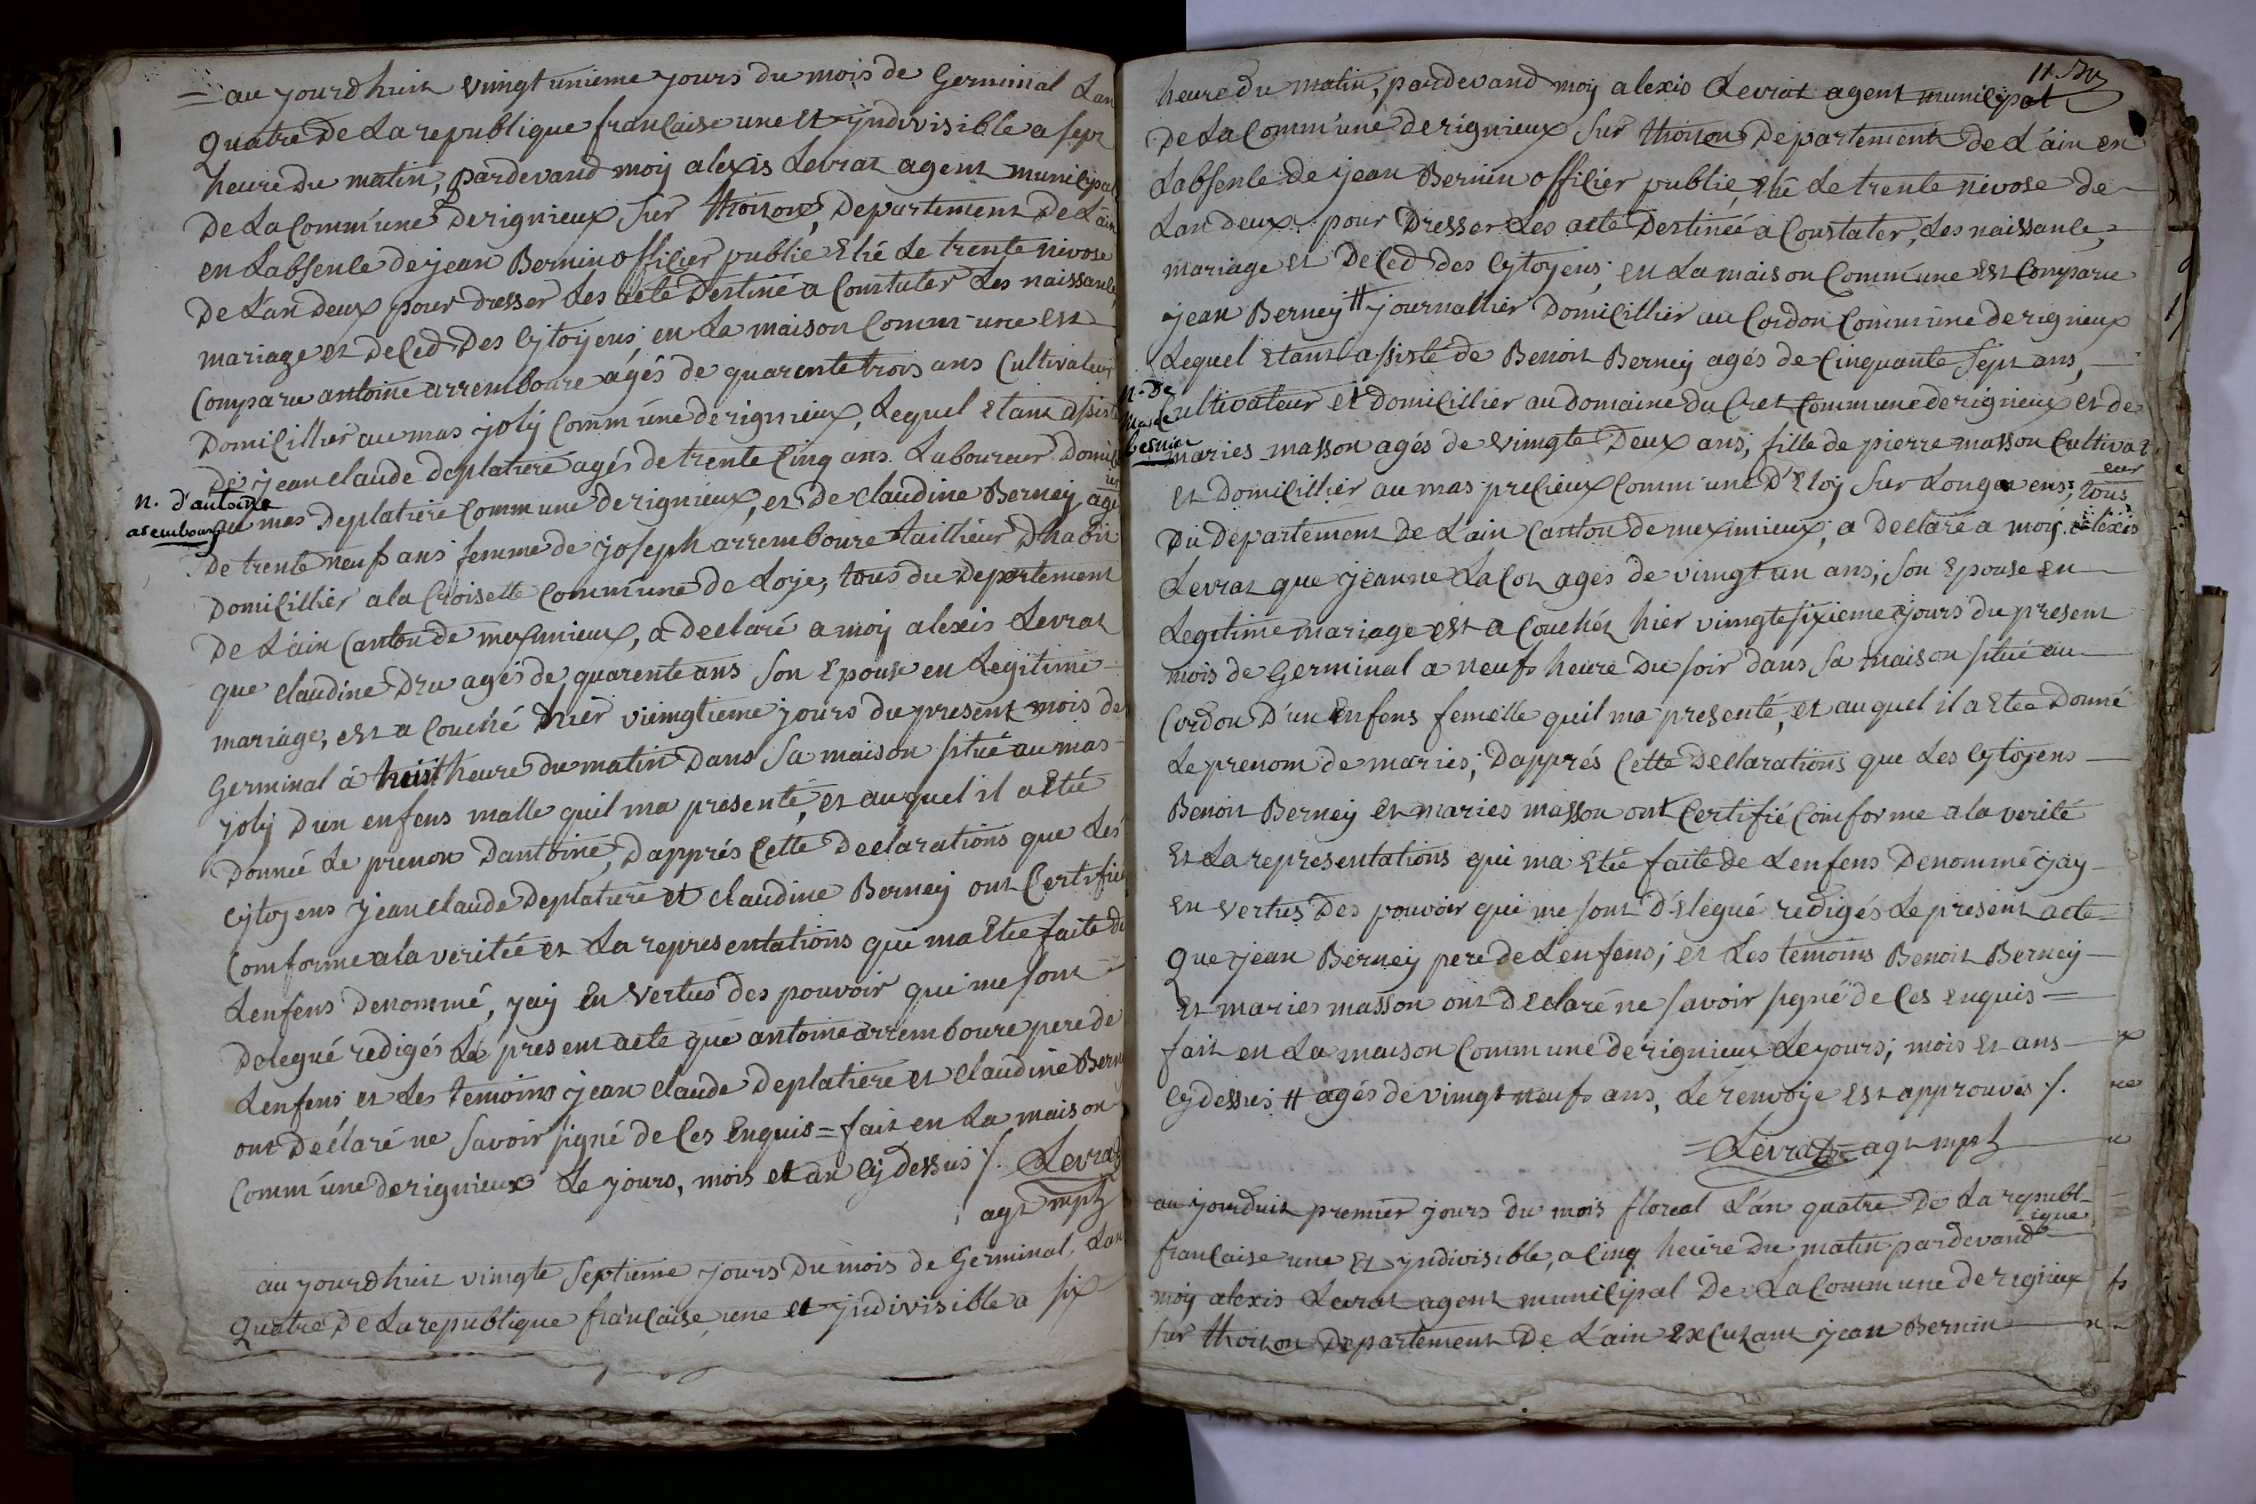 = au jourdhuit vuingt unieme jours du mois de Germinal Lan
Quatre De La republique francaise une et yndivisible a sept
heure Du matin, pardevand moÿ alexis Levrat agent municipal
De La Comm'une De rignieux sur thoison, Departement De L'ain
en Labsence de jean Bernin officier public Elié Le trente nivose
De L'an Deux pour dresser Les acte Destiné a Constater Les naissance,
mariage et Deced Des Cytoyens, en La maison Comm-une est
Comparu antoine arremboure agés de quarente trois ans Cultivateur
Domicillier au mas joly Comm'une de rignieux, Lequel Etant assisté
De jean claude Deplatiere agés de trente Cinq ans Laboureur Domicil
ier
n. d'antoine
arembourg
au mas Deplatiere Commune de rignieux, et De claudine Berney agé
De trente neuf ans femme de joseph arremboure taillieur Dhabit
Domicillier a la Croisette Comm'une de Loye, tous du Departement
De L'ain Canton de meximieux, a declaré a moÿ alexis Levrat
que claudine Dru agés de quarente ans Son Epouse en Legitime
mariage, est a Couché hier vuingtieme jours du present mois de
Germinal à huist heure du matin Dans Sa maison situé au mas
joly D'un enfens malle quil ma presenté, et auquel il a Eté
Donné Le prenon Dantoine, Dapprés Cette Declarations que Les
Cytoyens jean claude Deplatiere et claudine Berney ont Certifié
Comforme a la veritée et La representations qui ma Eté faite de
Lenfens Denommé, jaÿ En Vertus des pouvoir qui me sont
Delegué redigés Le present acte que antoine arremboure pere de
Lenfens et Les temoins jean claude Deplatiere et claudine Berney
ont Déclaré ne Savoir signé de Ces Enquis = fait en La maison
Comm'une de rignieux Le jours, mois et an Cy dessus ∕. Levrat
agt mpl
au jourdhuit vuingte Septieme jours Du mois de Germinal Lan
Quatre De La republique francaise une et yndivisible a six
11.
heure Du matin, pardevand moÿ alexis Levrat agent municipal
De La Comm'une de rignieux Sur thoison Departement De L'ain en
Labsence de jean Bernin officier public, Elié Le trente nivose de
Lan Deux pour Dresser Les acte Destinéé a Constater, Les naissance,
mariage et Deced Des Cytoyens, en La maison Comm'une est Comparu
jean Berney # journallier Domicillier au Cordon Comm'une de rignieux
Lequel Etant assisté de Benoit Berney agés de Cinquante Sept ans,
n. de
marie
bernier
Cultivateur et Domicillier au domaine du Cret Commune de rignieux et de
maries masson agés de vuingte Deux ans, fille de pierre masson Cultivat
eur
et Domicillier au mas precieux Comm'une D'Eloÿ Sur Longe ens, tous
Du Departement De L'ain Canton de meximieux, a Declaré a moÿ alexis
Levrat que jeanne Lacot agés de vuingt un ans, Son Epouse en
Legitime mariage est a Couchét hier vuingte sixieme jours du present
mois de Germinal a neuf heure Du soir dans Sa maison situé au
Cordon D'un Enfens femelle quil ma presenté, et auquel il a Etée Donné
Le prenom de maries, Dapprés Cette Declarations que Les Cytoyens
Benoit Berney et maries masson ont Certifié Comforme a la verité
Et La representations qui ma Eté faite de Lenfens Denommé jaÿ
En vertus Des pouvoir qui me sont D'elégué redigés Le present acte
Que jean Berney pere de Lenfens, et Les temoins Benoit Berney
Et maries masson ont Declaré ne savoir signé de Ces enquis =
fait en La maison Commune de rignieux Le jours, mois et ans
Cydessus # agés de vuingt neuf ans, Le renvoÿe est approuvés ∕.
= Levrat = agt mpl
au jourduit premier jours du mois floreal L'an quatre De La republ-
ique
francaise une Et yndivisible, a Cinq heure du matin pardevand
moÿ alexis Levrat agent municipal De La Commune de rignieux
Sur thoison Departement De L'ain Excusant jean Bernin